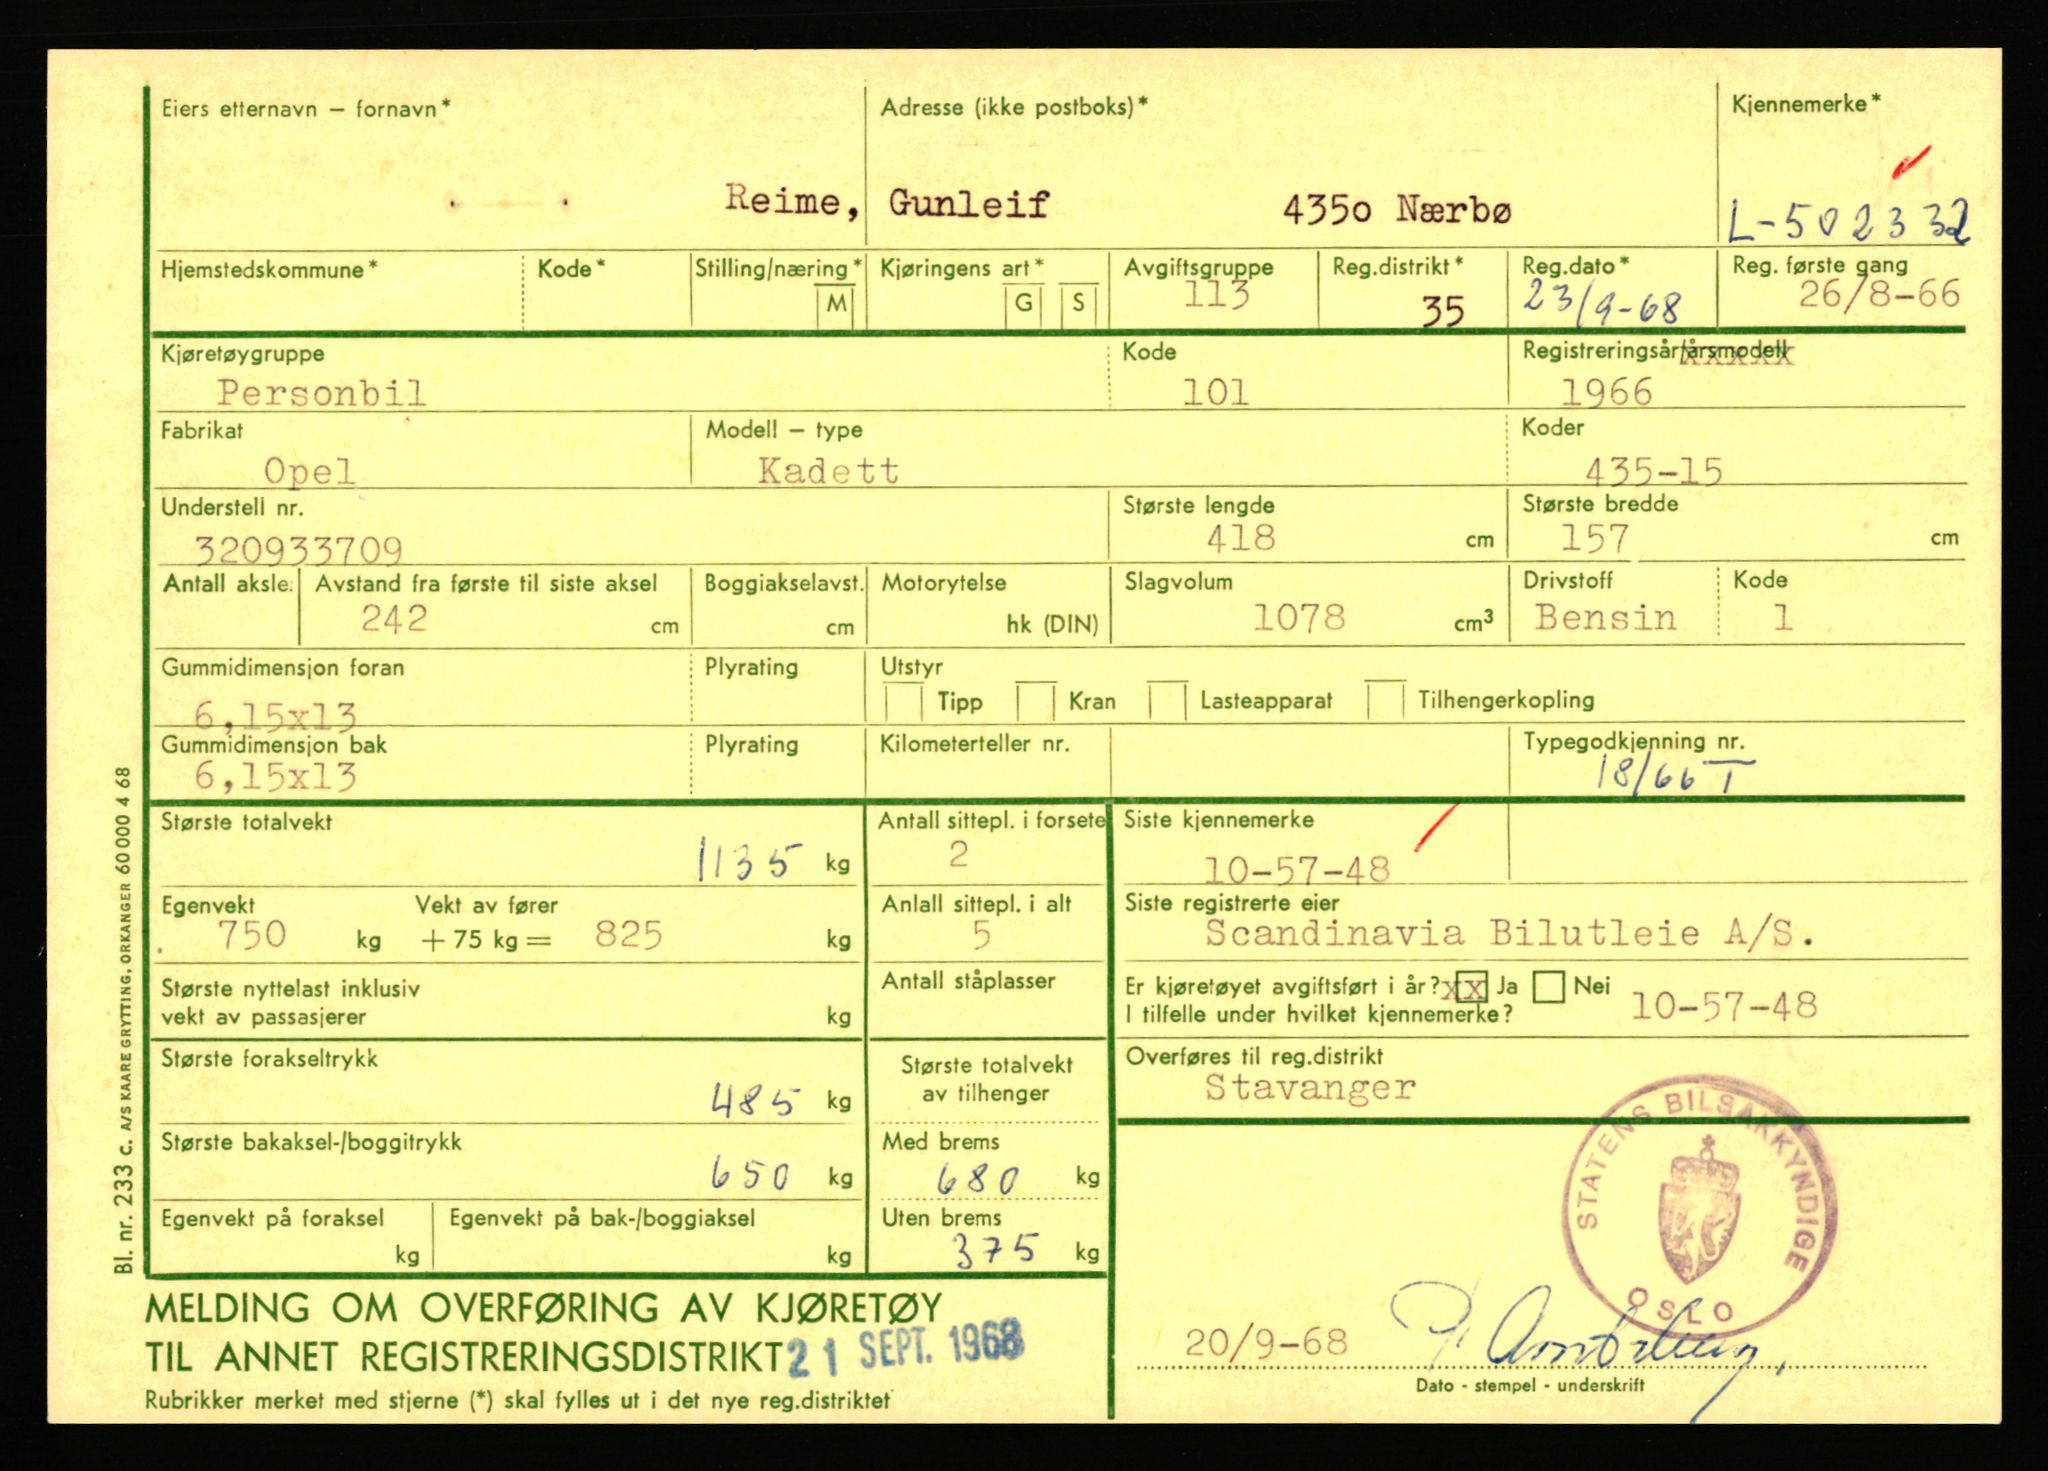 Eiers etternavn – fornavn* Adresse (ikke postboks)* Kjennemerke*
Reime, Gunleif 435o Nærbø L-502332
Hjemstedskommune* Kode* Stilling/næring* Kjøringens art* Avgiftsgruppe Reg.distrikt* Reg.dato* Reg. første gang
M G S 113 35 23/9-68 26/8-66
Kjøretøygruppe Kode Registreringsår/årsmodell
Personbil 101 1966
Fabrikat Modell – type Koder
Opel Kadett 435-15
Understell nr. Største lengde Største bredde
320933709 418 cm 157 cm
Antall aksle. Avstand fra første til siste aksel Boggiakselavst. Motorytelse Slagvolum Drivstoff Kode
242 cm cm hk (DIN) 1078 cm³ Bensin 1
Gummidimensjon foran Plyrating Utstyr
6,15x13 Tipp Kran Lasteapparat Tilhengerkopling
Gummidimensjon bak Plyrating Kilometerteller nr. Typegodkjenning nr.
6,15x13 18/66 I
Største totalvekt Antall sittepl. i forsete Siste kjennemerke
1135 kg 2 10-57-48
Egenvekt Vekt av fører Anlall sittepl. i alt Siste registrerte eier
750 kg + 75 kg = 825 kg 5 Scandinavia Bilutleie A/S.
Største nyttelast inklusiv Antall ståplasser Er kjøretøyet avgiftsført i år? xx Ja Nei
vekt av passasjerer kg I tilfelle under hvilket kjennemerke? 10-57-48
Største forakseltrykk Største totalvekt Overføres til reg.distrikt
485 kg av tilhenger Stavanger
Største bakaksel-/boggitrykk Med brems
650 kg 680 kg
Egenvekt på foraksel Egenvekt på bak-/boggiaksel Uten brems
kg kg 375 kg
STATENS BILSAKKYNDIGE
OSLO
MELDING OM OVERFØRING AV KJØRETØY
TIL ANNET REGISTRERINGSDISTRIKT 21 SEPT. 1968 20/9-68
Rubrikker merket med stjerne (*) skal fylles ut i det nye reg.distriktet Dato - stempel - underskrift
Bl. nr. 233 c. A/S KAARE GRYTTING, ORKANGER 60 000 4 68